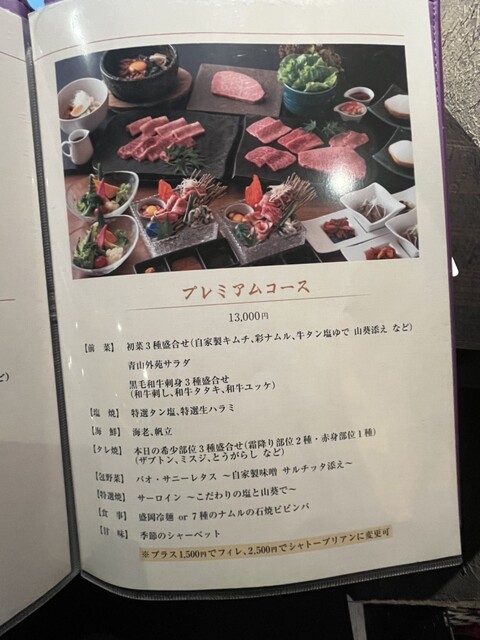 プレミアムコース
13,000円
【前 菜】 初菜3種盛合せ(自家製キムチ、彩ナムル、牛タン塩ゆで 山葵添え など)
青山外苑サラダ
黒毛和牛刺身3種盛合せ
(和牛刺し、和牛タタキ、和牛ユッケ)
【塩 焼】 特選タン塩、特選生ハラミ
【海 鮮】 海老、帆立
【タレ焼】 本日の希少部位3種盛合せ(霜降り部位2種・赤身部位1種)
(ザブトン、ミスジ、とうがらし など)
【包野菜】 パオ・サニーレタス ～自家製味噌 サルチッタ添え～
【特選焼】 サーロイン ～こだわりの塩と山葵で～
【食 事】 盛岡冷麺 or 7種のナムルの石焼ビビンバ
【甘 味】 季節のシャーベット
※プラス1,500円でフィレ、2,500円でシャトーブリアンに変更可
ど)